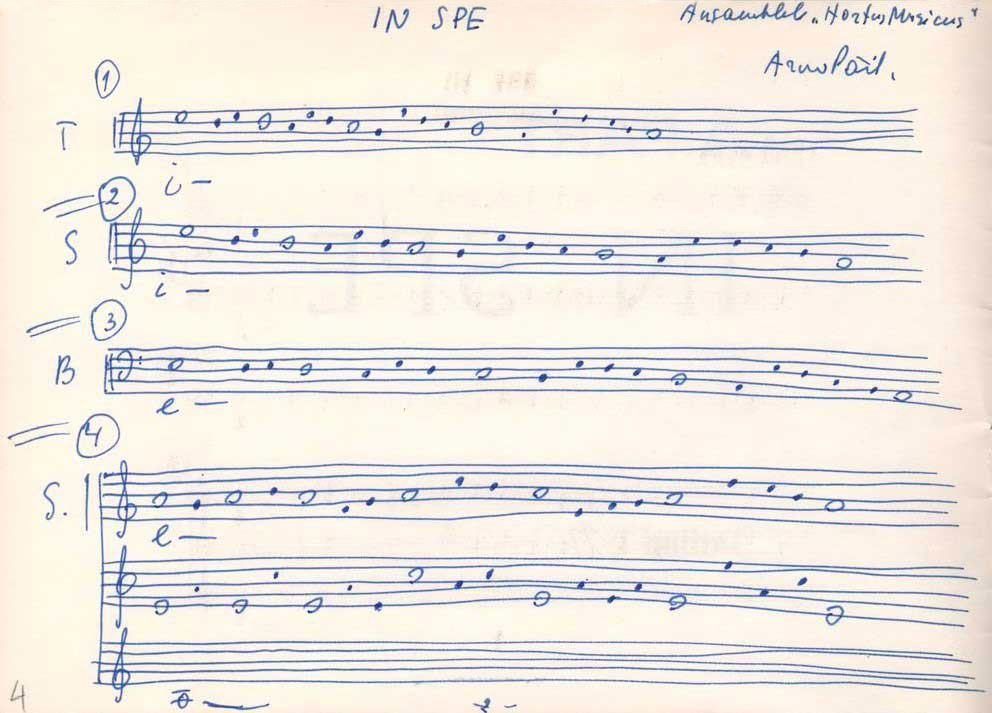 IN SPE
Ansambel „Hortus Musicus"
Arvo Pärt.
1
T
i –
2
S
i –
3
B
e –
4
S.
e –
4